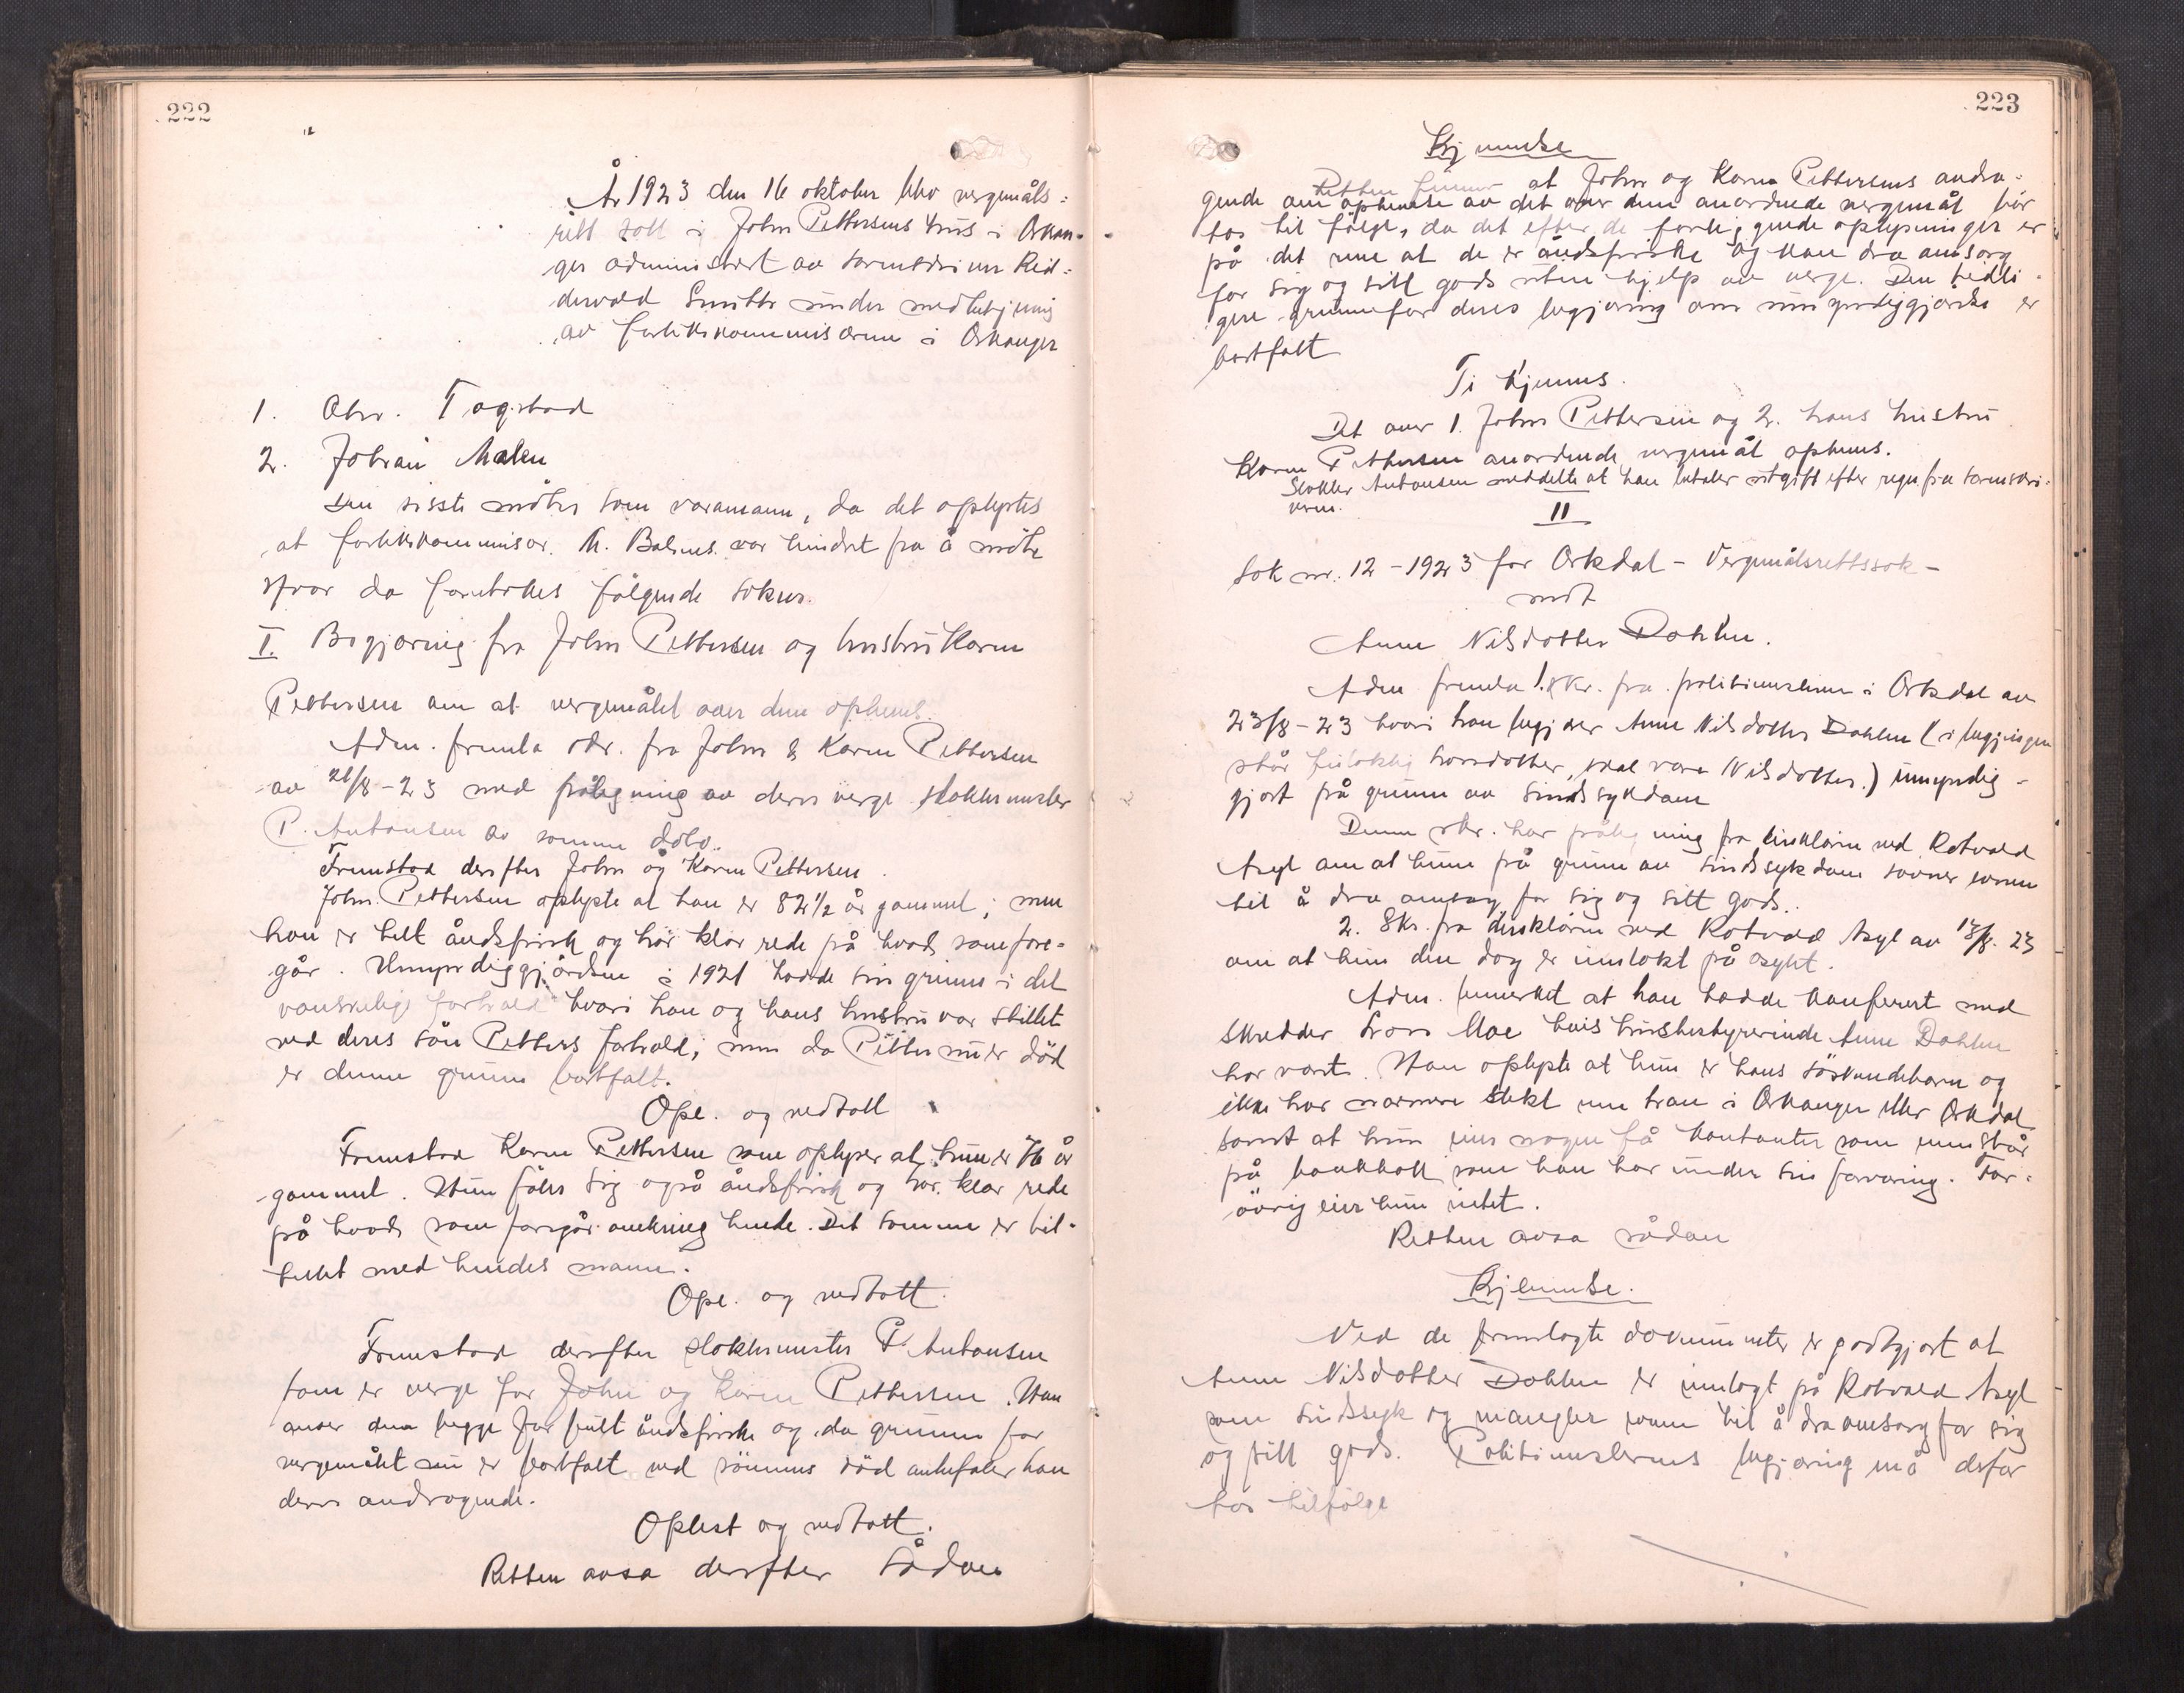 222
År 1923 den 16 oktober blev vergemåls-
rett satt i John Pettersens hus i Orkan-
ger administrert av sorenskriver Rid-
dervold Smith under medbetjening
av forlikskommisærene i Orkanger
1. Chr. Togstad
2. Johan Malen
Den siste møter som varamann, da det oplystes
at forlikskommisær M. Balsnes var hindret fra å møte
Hvor da foretokes følgende saker.
I. Begjæring fra John Pettersen og hustru Karen
Pettersen om at vergemålet over dem opheves.
Adm. fremla skr. fra John & Karen Pettersen
av 21/8-23 med påtegning av deres verge slaktermester
P. Antonsen av samme dato.
Fremstod derefter John og Karen Pettersen.
John Pettersen oplyste at han er 82 1/2 år gammel; men
han er helt åndsfrisk og har klar rede på hvad som fore-
går. Umyndiggjørelsen i 1921 hadde sin grunn i det
vanskelige forhold hvori han og hans hustru var stillet
ved deres søn Petters forhold; men da Petter nu er død
er denne grunn bortfalt.
Opl. og vedtatt
Fremstod Karen Pettersen som oplyser at hun er 76 år
gammel. Hun føler sig også åndsfrisk og har klar rede
på hvad som foregår omkring hende. Det samme er til-
fellet med hendes mann.
Opl. og vedtatt.
Fremstod derefter slaktermester P. Antonsen
som er verge for John og Karen Pettersen. Han
anser dem begge for fullt åndsfriske og da grunnen for
vergemålet nu er bortfalt ved sønnens død anbefaler han
deres andragende.
Oplest og vedtatt.
Retten avsa derefter sådan
223
Kjennelse
Retten finner at John og Karen Pettersens andra-
gende om ophevelse av det over dem anordnede vergemål bør
tas til følge, da det efter de foreliggende oplysninger er
på det rene at de er åndsfriske og kan dra omsorg
for sig og sitt gods uten hjelp av verge. Den tidli-
gere grunn for deres begjæring om umyndiggjørelse er
bortfalt
Ti kjennes.
Det over 1. John Pettersen og 2. hans hustru
Karen Pettersen anordnede vergemål opheves.
Slakter Antonsen meddelte at han betaler utgift efter regn fra sorenskri-
veren.
II
Sak nr. 12-1923 for Orkdal - Vergemålsrettssak -
mot
Anne Nilsdotter Dahlen.
Adm. fremla 1. skr. fra politimesteren i Orkdal av
23/8-23 hvori han begjærer Anne Nilsdotter Dahlen (i begjæringen
står feilaktig Larsdotter, skal være Nilsdotter.) umyndig-
gjort på grunn av sindssykdom
Denne skr. har påtegning fra direktøren ved Rotvold
Asyl om at hun på grunn av sindssykdom savner evnen
til å dra omsorg for sig og sitt gods..
2. Skr. fra direktøren ved Rotvold Asyl av 13/8. 23
om at hun den dag er innlakt på asylet.
Adm. bemerket at han hadde konferert med
skredder Lars Moe hvis husbestyrerinde Anne Dahlen
har vært. Han oplyste at hun er hans søskendebarn og
ikke har nærmere slekt enn han i Orkanger eller Orkdal
samt at hun eier nogen få kontanter som innestår
på bankbok som han har under sin forvaring. For-
øvrig eier hun intet.
Retten avsa sådan
Kjennelse.
Ved de fremlagte dokumenter er godtgjort at
Anne Nilsdotter Dahlen er innlagt på Rotvold Asyl
som sindssyk og mangler evnen til å dra omsorg for sig
og sitt gods. Politimesterens begjæring må derfor
tas tilfølge